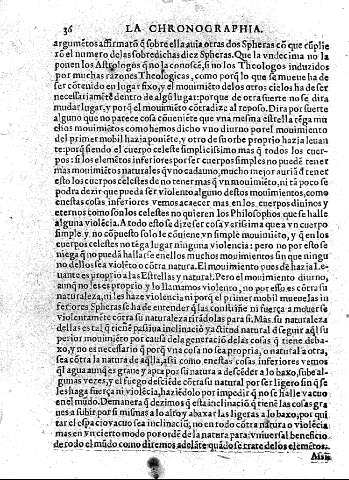 36 LA CHRONOGRAPHIA.
argumẽtos affirmarõ q̃ sobre ella auia otras dos Spheras cõ que cũplie
rõ el numero de las sobredichas diez Spheras. Que la vndecima no la
ponen los Astrologos q̃ no la conoscẽ, si no los Theologos induzidos
por muchas razones Theologicas, como porq̃ lo que se mueue ha de
ser cõtenido en lugar fixo, y el mouimiẽto delos otros cielos ha de ser
necessariamẽte dentro de algũ lugar: porque de otra fuerte no se dira
mudar lugar, y porq̃ el mouimiẽto cõtradize al reposo. Dira por fuerte
alguno que no parece cosa cõueniẽte que vna mesma estrella tẽga mu
chos mouimiẽtos como hemos dicho vno diurno por el mouimiento
del primer mobil hazia poniẽte, y otro de su orbe proprio hazia leuan
te: porq̃ siendo el cuerpo celeste simplicissimo mas q̃ todos los cuer-
pos: si los elemẽtos inferiores por ser cuerpos simples no puedẽ tener
mas mouimiẽtos naturales q̃ vno cadauno, mucho mejor auriã d̃ tener
esto los cuerpos celestes de no tener mas q̃ vn mouimiẽto, ni tã poco se
podra dezir que pueda ser violento alguno destos mouimientos, como
enestas cosas inferiores vemos acaecer mas en los cuerpos diuinos y
eternos como son los celestes no quieren los Philosophos que se halle
alguna violẽcia. A todo esto se dize ser cosa verissima que a vn cuerpo
simple y no cõpuesto solo le cõuiene vn simple mouimiẽto, y q̃ en los
cuerpos celestes no tẽga lugar ninguna violencia: pero no por esto se
niega q̃ no puedã hallarse enellos muchos mouimientos sin que ningu
no dellos sea violẽto o cõtra natura. El mouimiento pues de hazia Le-
uante es proprio a las Estrellas y natural. Pero el mouimiento diurno,
aunq̃ no les es proprio y lo llamamos violento, no por esso es cõtra su
naturaleza, ni les haze violencia ni porq̃ el primer mobil mueue las in
feriores Spheras se ha de entender q̃ las cõstriñe ni fuerça a mouerse
violentamẽte cõtra su naturaleza tirãdolas para si. Mas su naturaleza
dellas es tal q̃ tienẽ passiua inclinaciõ y actitud natural d̃ seguir aq̃l su
perior mouimiẽto por causa dela generaciõ delas cosas q̃ tiene deba-
xo, y no es necessario q̃ porq̃ vna cosa no sea propria, o natural a otra,
sea cõtra la natura de aq̃lla, assi como enestas cosas inferiores vemos
q̃l agua aunq̃ es graue y apta por su natura a descẽder a lo baxo, sube al-
gunas vezes, y el fuego desciẽde cõtra su natural por ser ligero sin q̃ se
les haga fuerça ni violẽcia, haziẽdolo por impedir q̃ no se halle vacuo
en el mũdo. De manera q̃ dezimos q̃ esta inclinaciõ q̃ tienẽ las cosas gra
ues a subir por si mismas a lo alto y abaxar las ligeras a lo baxo, por qui
tar el espacio vacuo sea inclinaciõ, no en todo cõtra natura o violẽcia
mas en vn cierto modo por ordẽ de la natura para vniuersal beneficio
de todo el mũdo como diremos adelãte quãdo se trate de los elemẽtos.